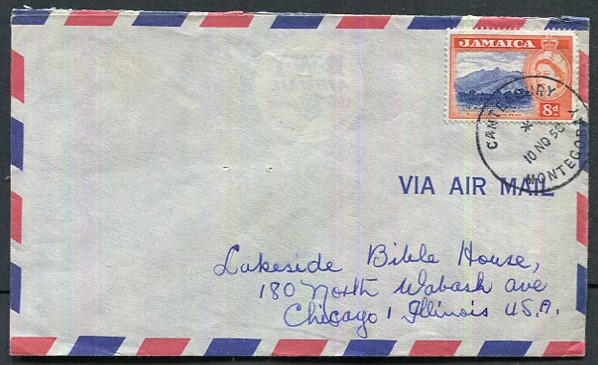 JAMAICA
8d
CANTERBURY
*
10 NO 58
MONTEGO BAY
VIA AIR MAIL
Lakeside Bible House,
180 North Wabash ave
Chicago 1 Illinois U.S.A.